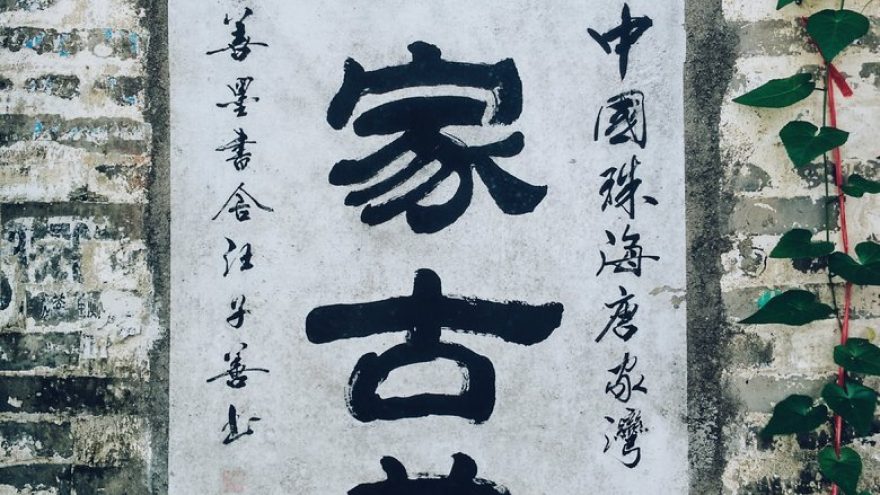 中國珠海唐家灣
家古
善墨書舍汪子善书